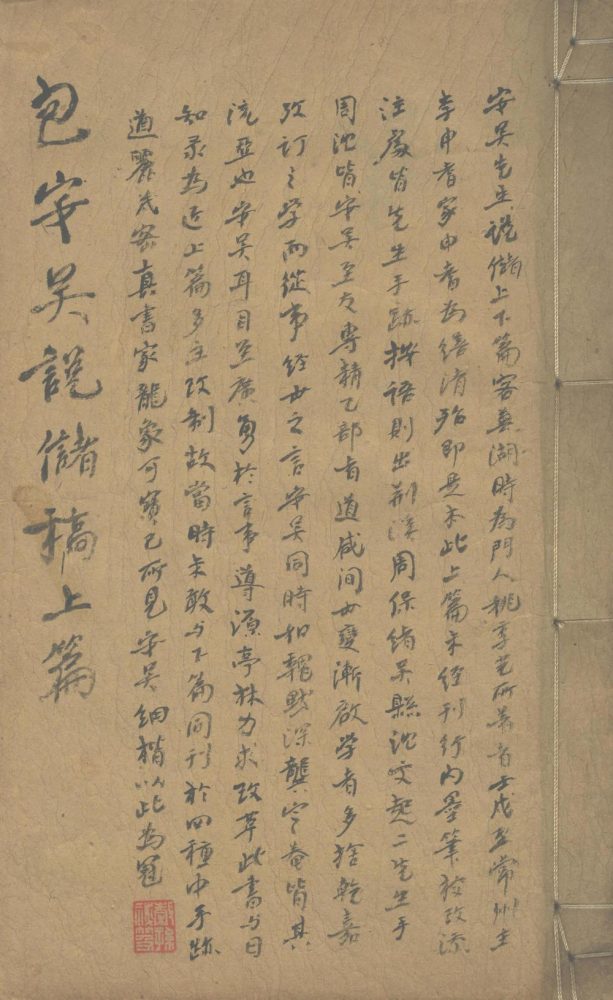 安吳先生說儲上下篇客蕪湖時為門人姚季光所著者壬戌至常州主
李申耆家申耆為繕清殆即是本此上篇未經刊行內墨筆校改添
注處皆先生手跡按語則出荊溪周保緒吳縣沈文起二先生手
周沈皆安吳至友專精乙部者道咸間世變漸啟學者多捨乾嘉
攷訂之學而從事經世之言安吳同時如魏默深龔定菴皆其
流亞也安吳耳目至廣勇於言事導源亭林力求改革此書与日
知录為近上篇多主改制故當時未敢与下篇同刊於四種中手跡
遒麗茂密真書家龍象可寶已所見安吳細楷以此為冠
包安吳說儲稿上篇